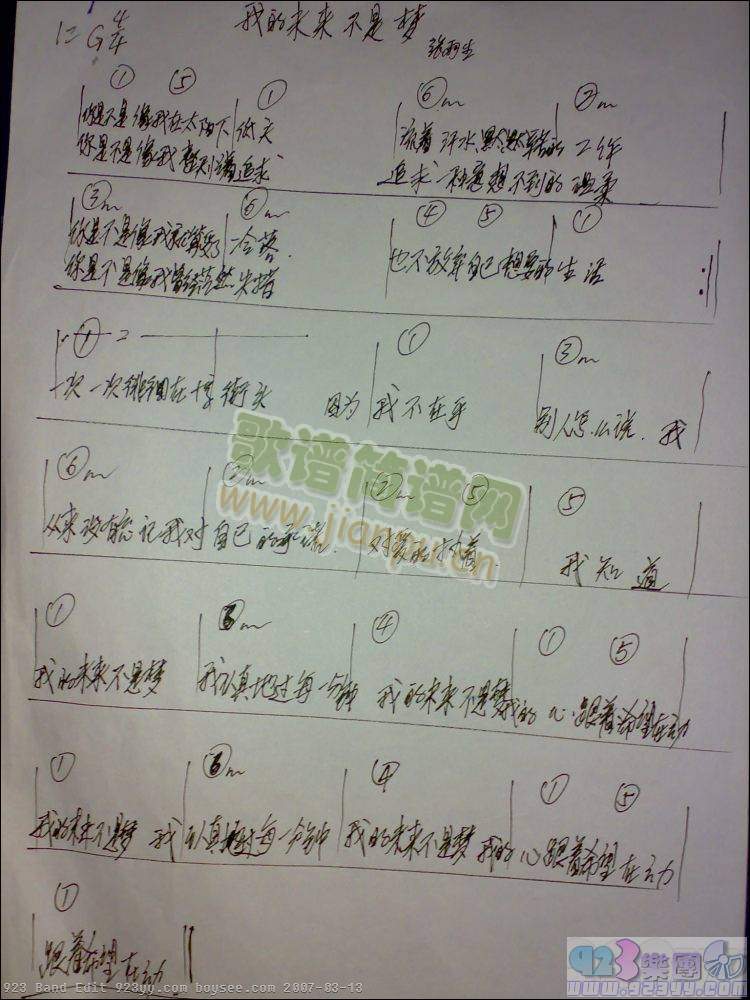 我的未来不是梦
1=G 4/4
张雨生
① ⑤ ① ⑥m ②m
你是不是像我在太阳下低头 流着汗水默默辛苦的工作
你是不是像我整天忙着追求 追求一种意想不到的温柔
③m ⑥m ④ ⑤ ①
你是不是像我就算受了冷落 也不放弃自己想要的生活
你是不是像我曾经茫然失措
① 2 ① ③m
一次一次徘徊在十字街头 因为 我不在乎 别人怎么说 我
⑥m ②m ⑤ ⑤
从来没有忘记我对自己的承诺 对爱的执着 我知道
① ③m ④ ① ⑤
我的未来不是梦 我认真地过每一分钟 我的未来不是梦 我的心跟着希望在动
① ③m ④ ① ⑤
我的未来不是梦 我认真地过每一分钟 我的未来不是梦 我的心跟着希望在动
①
跟着希望在动
歌谱简谱网
www.jianpu.cn
923 Band Edit 923yy.com boysee.com 2007-03-13
923樂團
www.923yy.com